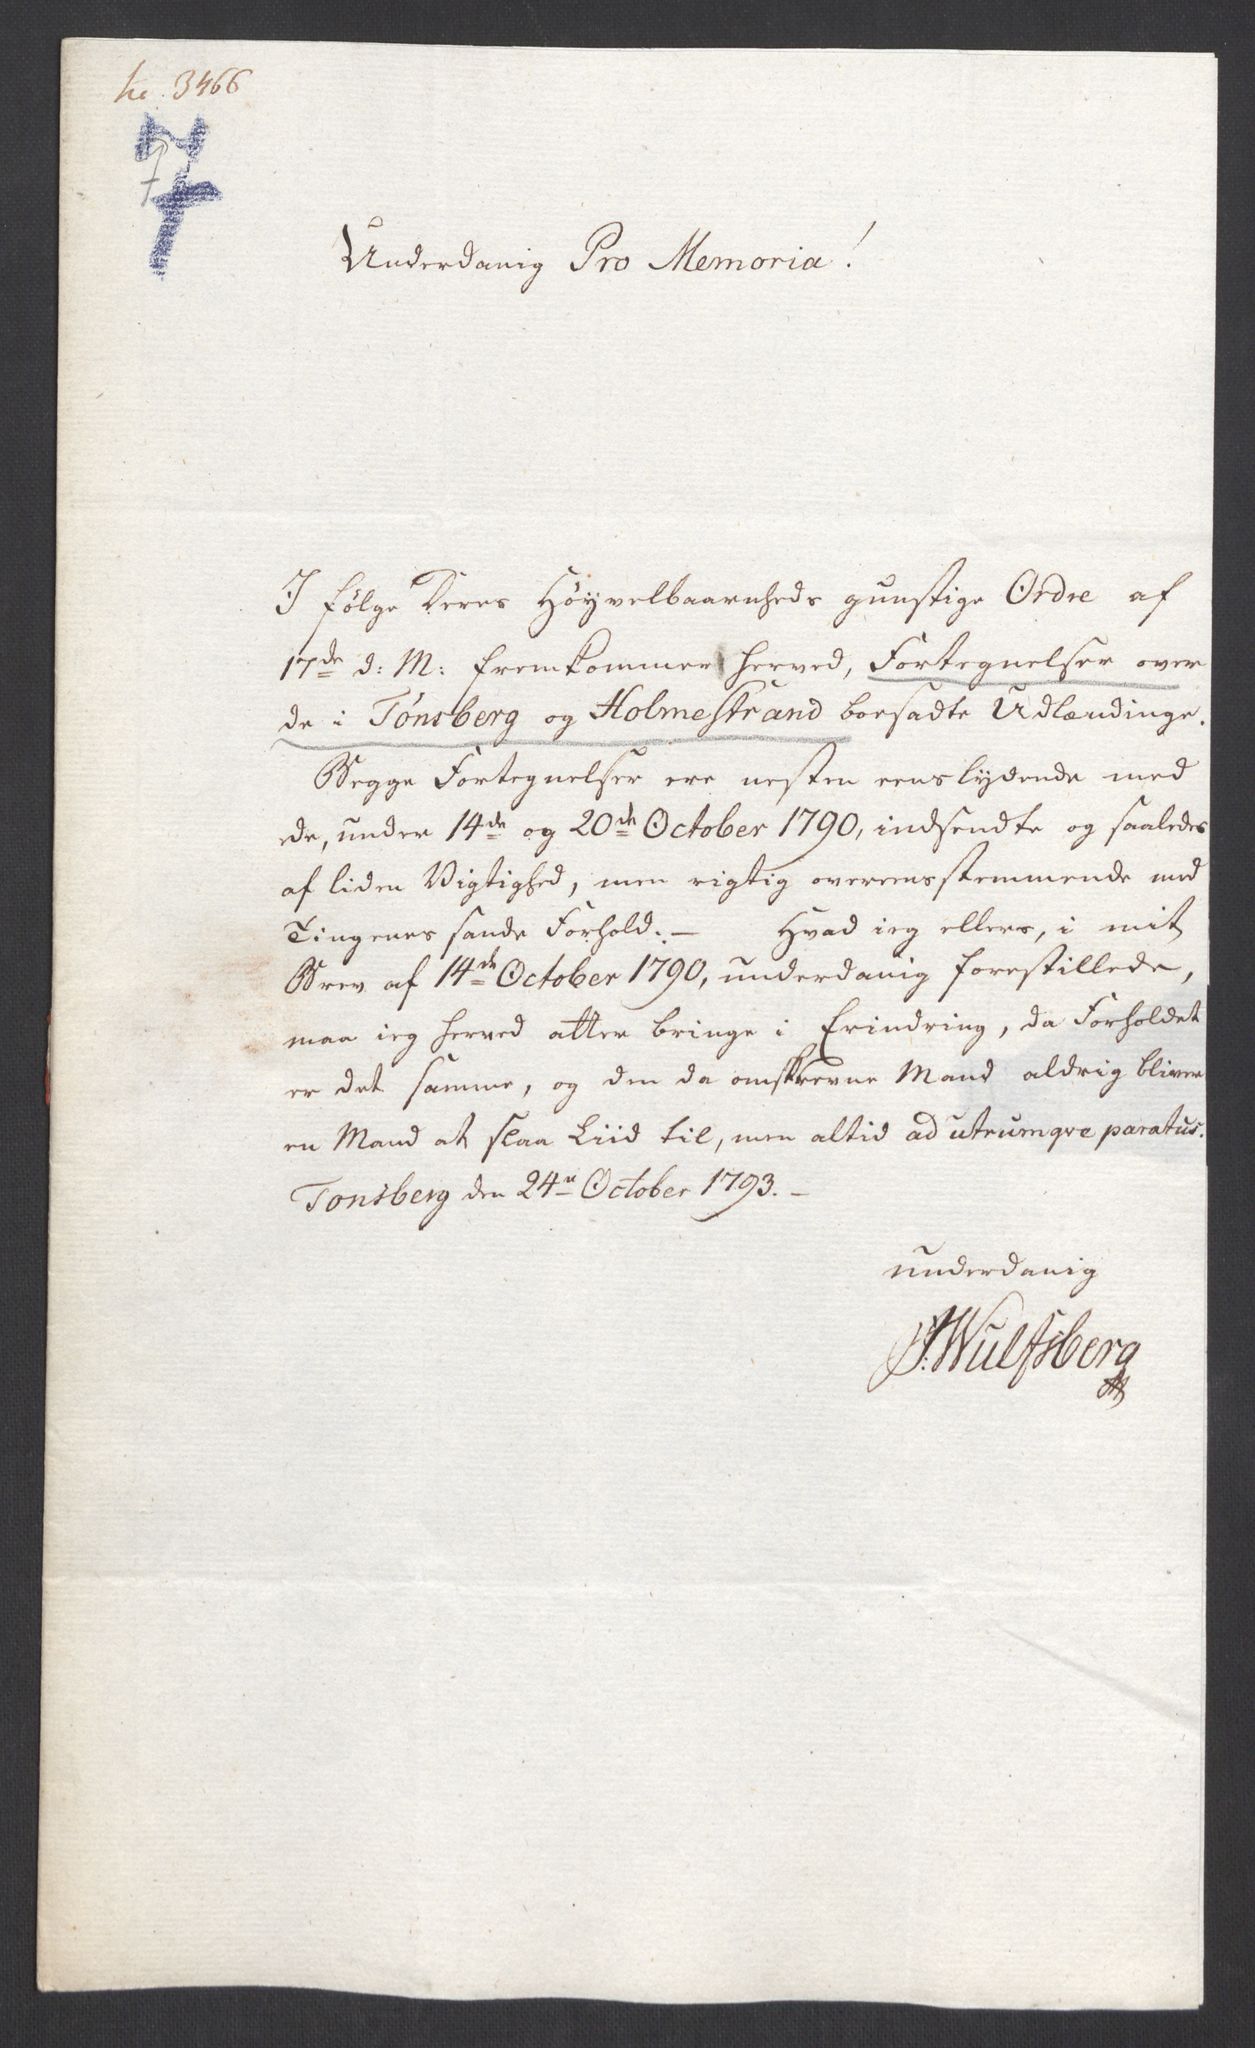 3466
7
7
Underdanig Pro Memoria!
I følge Deres Höyvelbaarnheds gunstige Ordre af
17de d: M: fremkommer herved, Fortegnelser over
de i Tønsberg og Holmestrand boesadte Udlændinge.
Begge Fortegnelser ere nesten eenslydende med
de, under 14de og 20de October 1790, indsendte og saaledes
af liden Vigtighed, men rigtig overeensstemmende med
Tingenes sande Forhold. — Hvad ieg ellers, i mit
Brev af 14de October 1790, underdanig forestillede,
maa ieg herved atter bringe i Erindring, da Forholdet
er det samme, og den da omskrevne Mand aldrig bliver
en Mand at slaa Liid til, men altid ad utrumqve paratus.
Tonsberg den 24de October 1793. –
underdanig
Wulfsberg